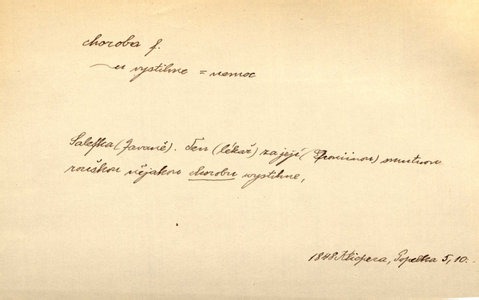 choroba f.
~u vystihne = nemoc
Salefka (Javaně). Ten (lékař) za její ( ) smutnou
rouškou nějakou chorobu vystihne,
1848 Klicpera, Popelka 5, 10.